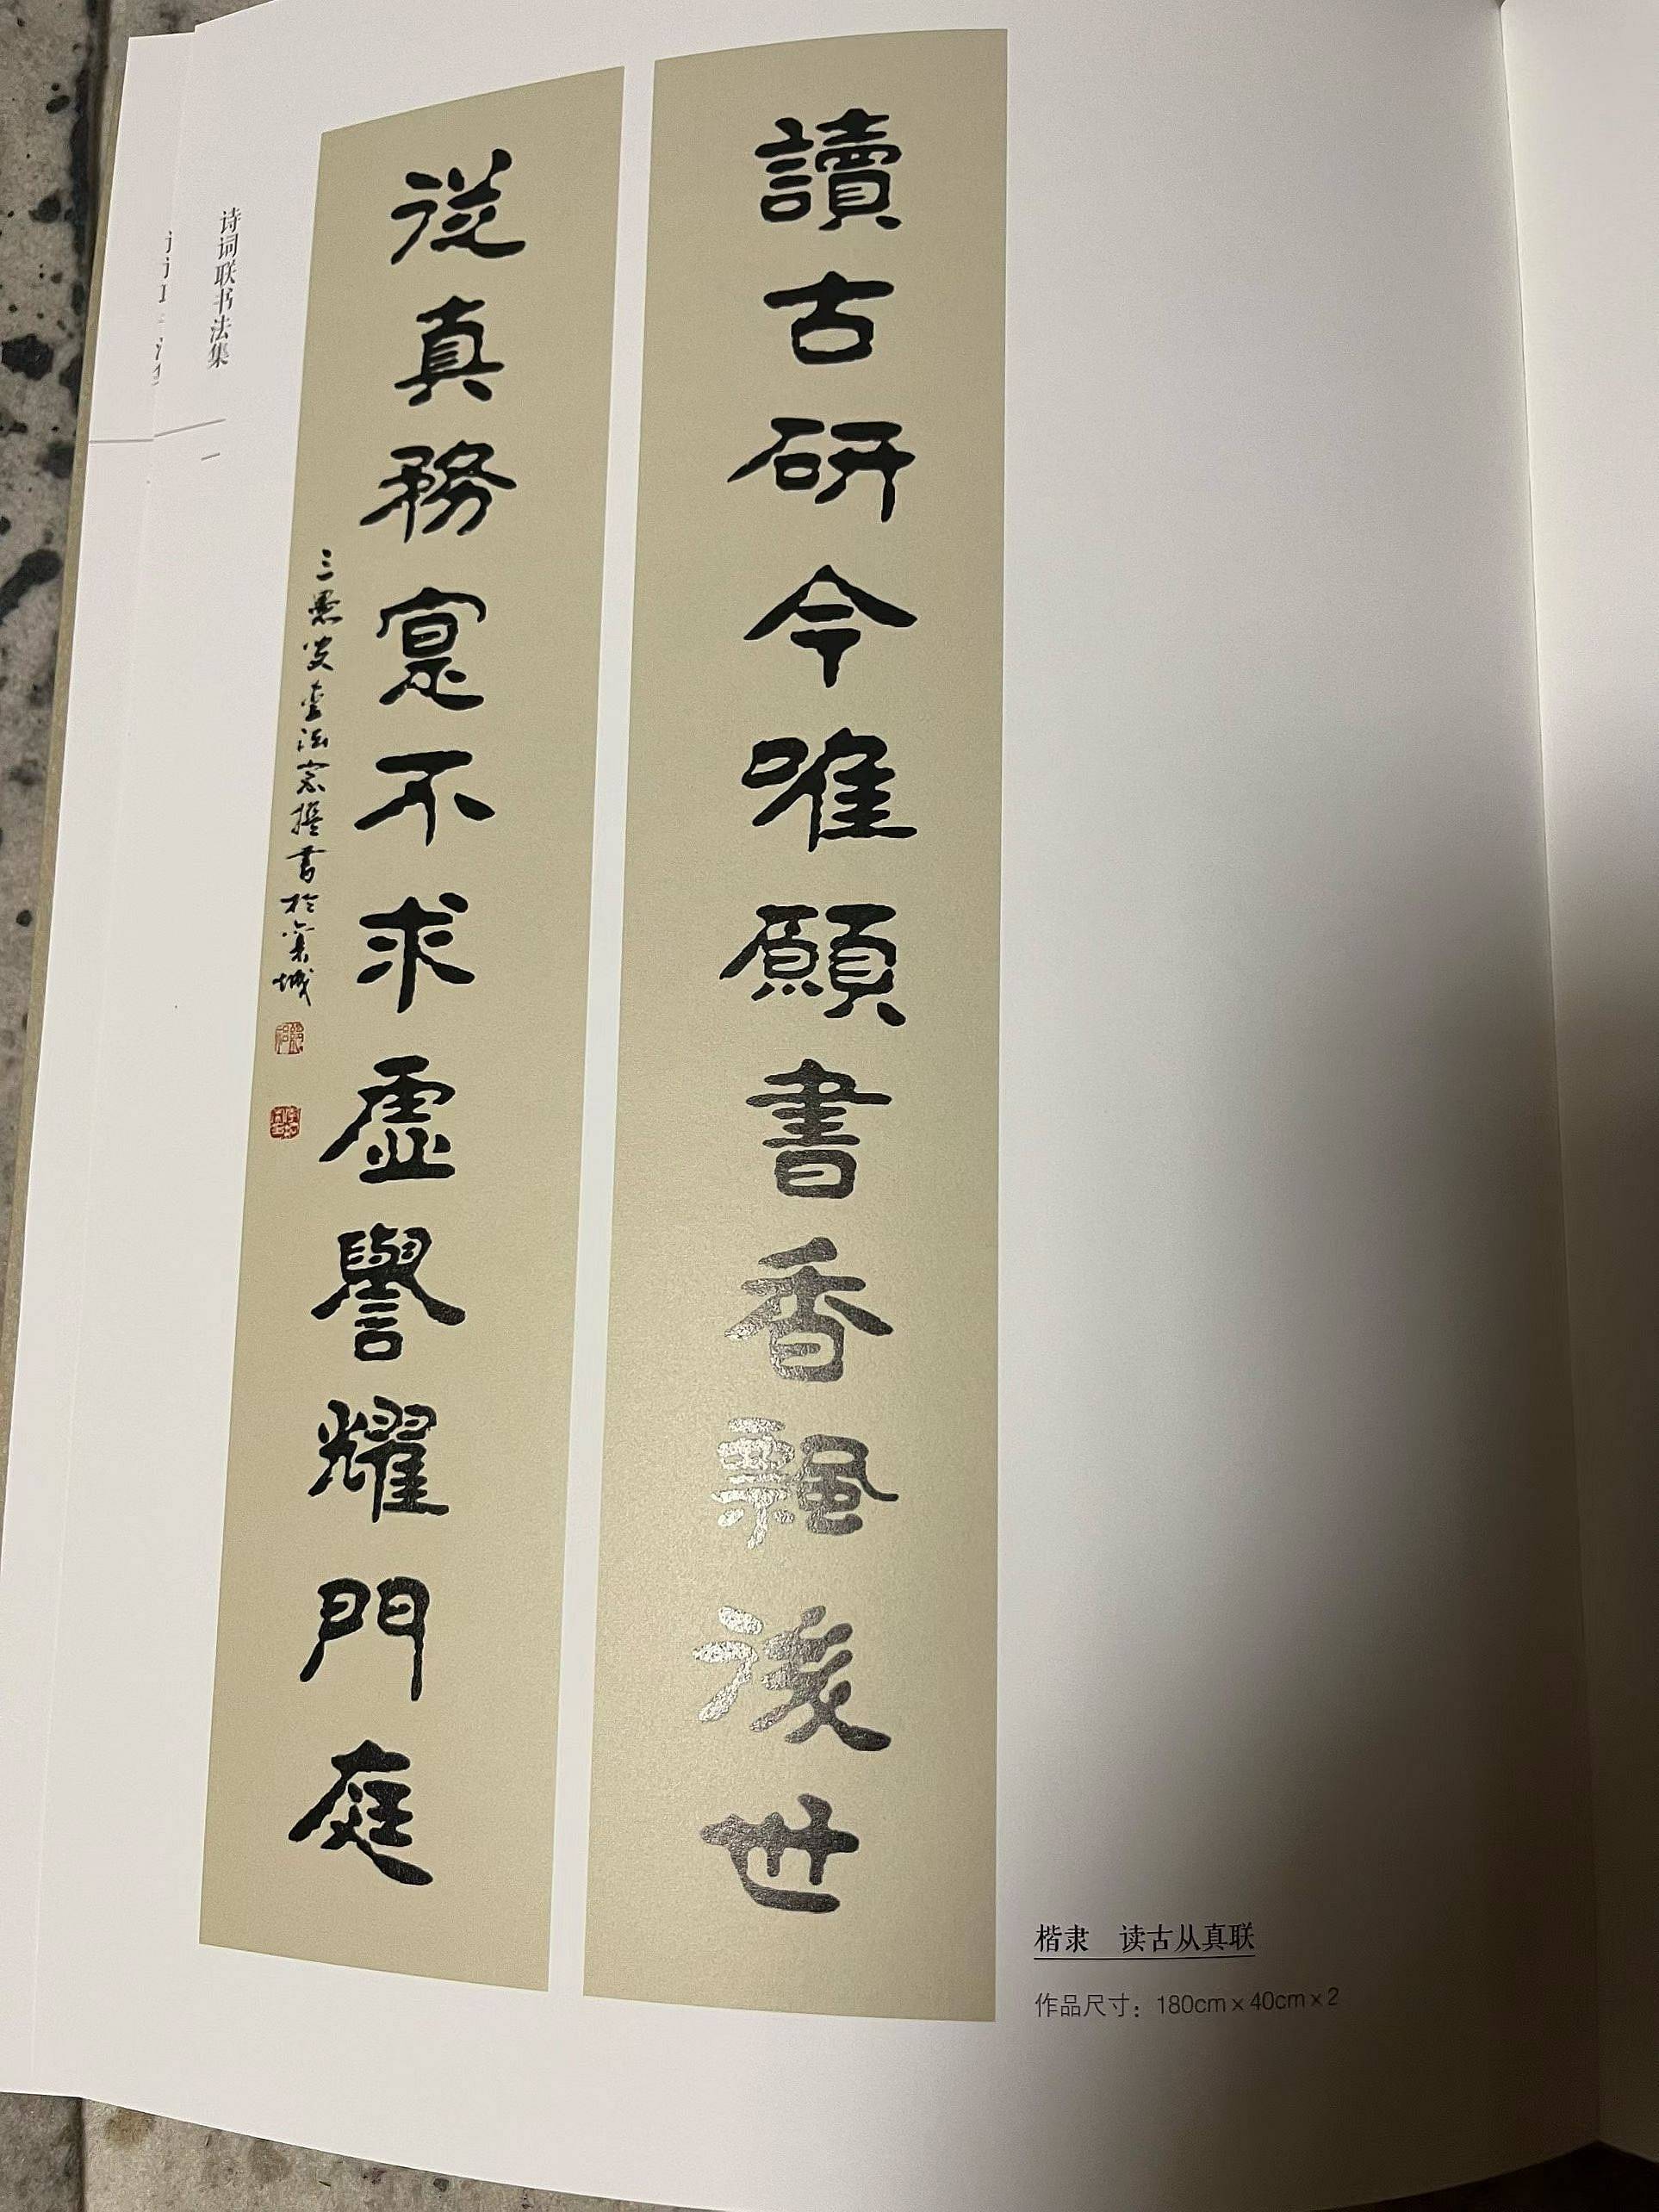 讀古研今唯願書香飄後世
從真務寔不求虛譽耀門庭
三愚叟 法 撰書於 城
诗词联书法集
楷隶　读古从真联
作品尺寸：180cm×40cm×2